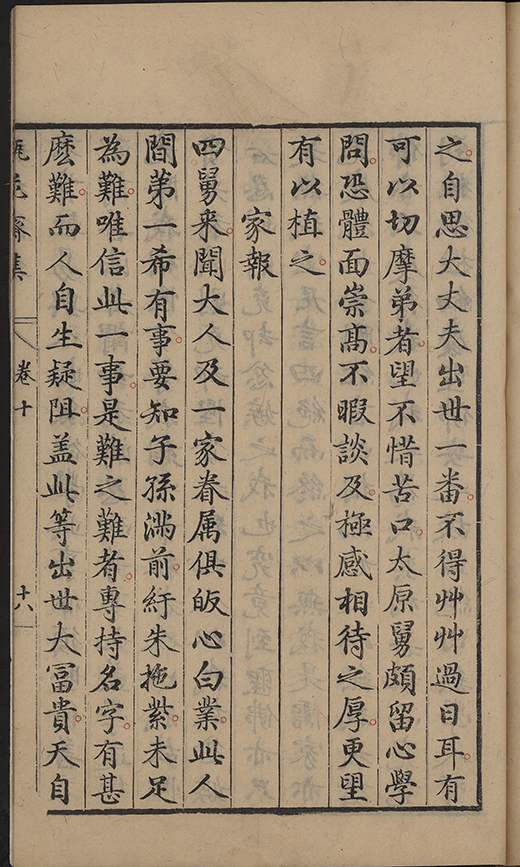 之自思大丈夫出世一番不得艸艸過日耳有
可以切摩弟者望不惜苦口太原舅頗留心學
問恐體面崇髙不暇談及極感相待之厚更望
有以植之
家報
四舅来聞大人及一家眷属俱皈心白業此人
間苐一希有事要知子孫滿前紆朱拖紫未足
為難唯信此一事是難之難者専持名字有甚
麽難而人自生疑阻盖此等出世大冨貴天自
瓶花齋集
卷十
十八